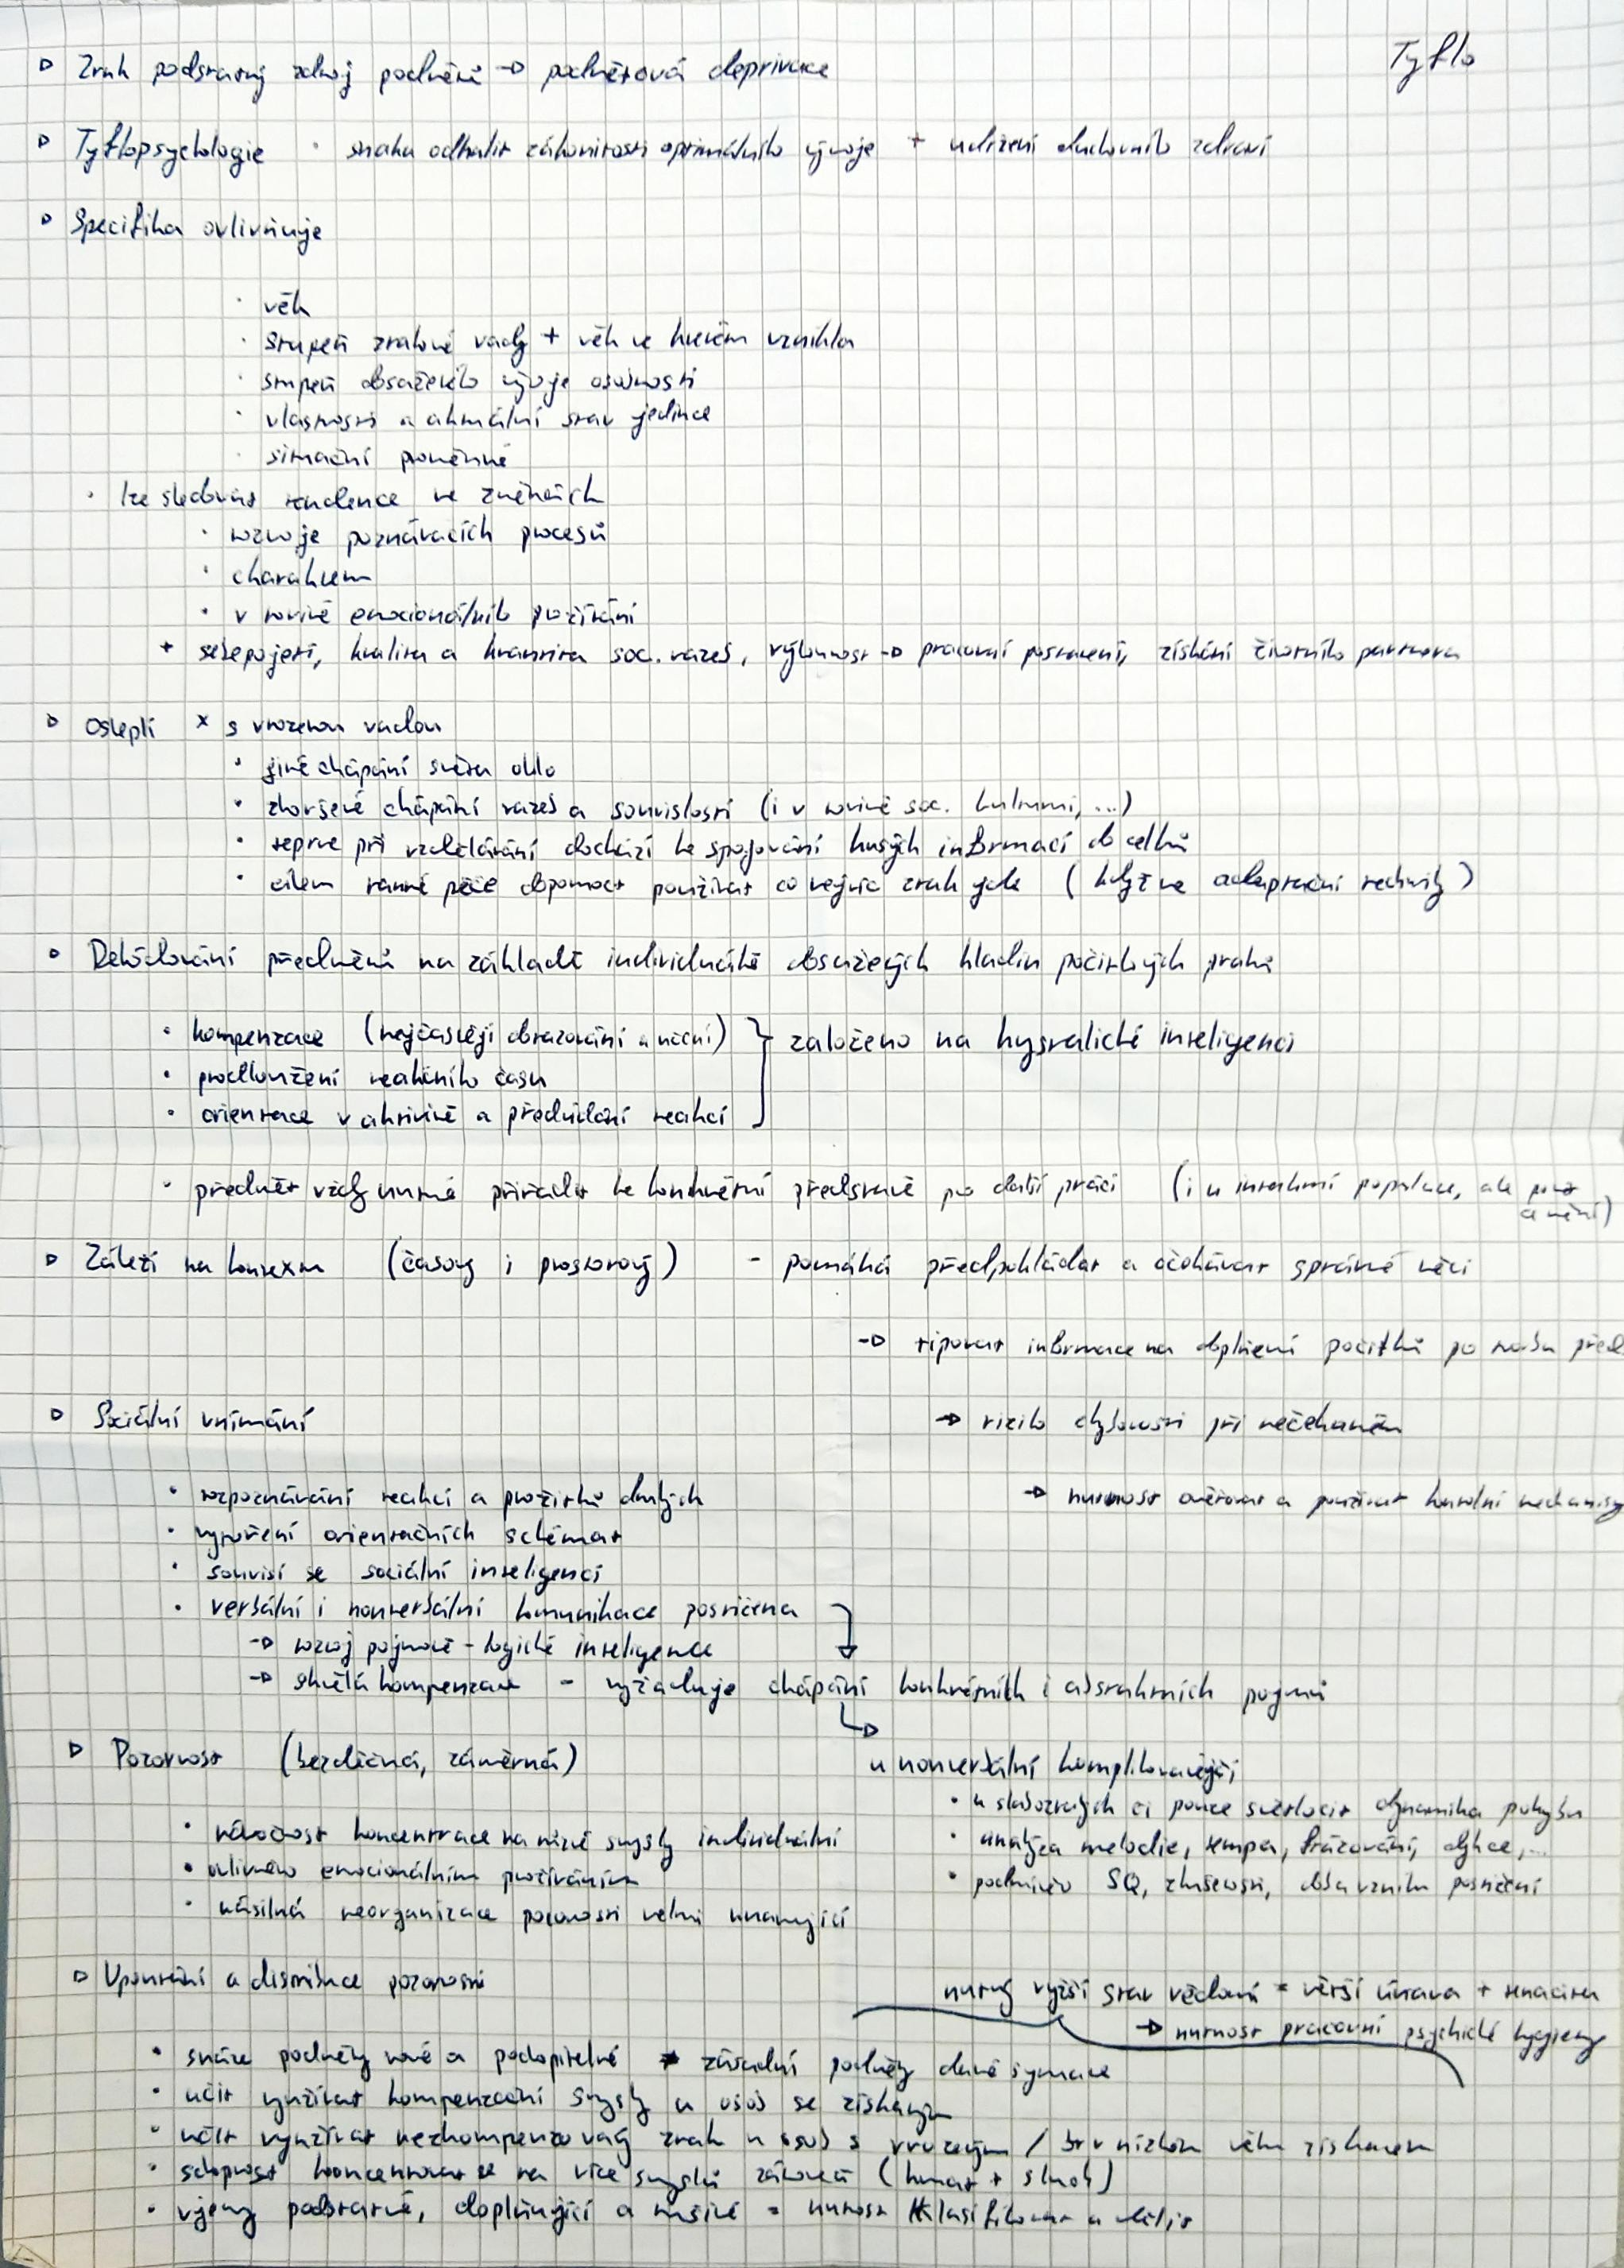 Tyflo
▷ Zrak podstatný zdroj podnětů → podnětová deprivace
▷ Tyflopsychologie · snaha odhalit zákonitosti optimálního vývoje + udržení duchovního zdraví
▷ Specifika ovlivňuje
· věk
· stupeň zrakové vady + věk ve kterém vznikla
· stupeň dosaženého vývoje osobnosti
· vlastnosti a aktuální stav jedince
· situační proměnné
· lze sledovat tendence ve změnách
· rozvoje poznávacích procesů
· charakteru
· v rovině emocionálního prožívání
+ sebepojetí, kvalita a kvantita soc. vazeb, výkonnost → pracovní postavení, získání životního partnera
▷ Oslepli × s vrozenou vadou
· jiné chápání světa oklo
· zhoršené chápání vazeb a souvislostí (i v rovině soc. kulturní, ...)
· teprve při vzdělávání dochází ke spojování kusých informací do celků
· cílem ranné péče dopomoct používat co nejvíc zrak jde (když ne adaptační techniky)
▷ Dekódování předmětů na základě individuálně dosažených hladin počitkových prahů
· kompenzace (nejčastěji obrazování a učení) } založeno na krystalické inteligenci
· prodloužení reakčního času
· orientace v aktivitě a předvídání reakcí
· předmět vždy nutné přiřadit ke konkrétní představě pro další práci (i u intaktní populace, ale
▷ Záleží na kontextu (časový i prostorový) - pomáhá předpokládat a očekávat správné věci
→ tipovat informace na doplnění počitků po
▷ Sociální vnímání
→ riziko chybovosti při nečekaném
· rozpoznávání reakcí a prožitků druhých
→ nutnost ověřovat a používat kontrolní mechanismy
· vytvoření orientačních schémat
· souvisí se sociální inteligencí
· verbální i nonverbální komunikace postižena
→ rozvoj pojmově-logické inteligence
→ skvělá kompenzace - vyžaduje chápání konkrétních i abstraktních pojmů
▷ Pozornost (bezděčná, záměrná)
u nonverbální komplikovanější
· u slabozrakých či pouze světlocit dynamika pohybu
· náročnost koncentrace na nové smysly individuální
· analýza melodie, tempa, frázování, dykce, ...
· ovlivněno emocionálním prožíváním
· podmíněno SQ, zkušenosti, doba vzniku postižení
· násilná reorganizace pozornosti velmi unavující
▷ Upoutání a distribuce pozornosti
nutný vyšší stav vědomí = větší únava + tenacita
→ nutnost pracovní psychické hygieny
· snáze podněty nové a podopitelné ≠ zásadní podněty dané situace
· učit využívat kompenzační smysly u osob se získaným
· učit využívat nezkompenzovaný zrak u osob s vrozeným / br v nízkém věku získaném
· schopnost koncentrovat se na více smyslů zároveň (hmat + sluch)
· vjemy podstatné, doplňující a rušivé = nutnost klasifikovat a dělit